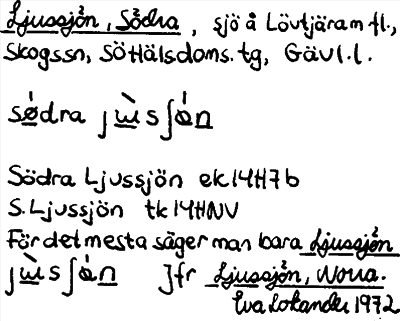 Ljussjön, Södra, sjö å Lövtjäram fl.,
Skogssn, SöHälsdoms.tg, Gävl.l.
sødra jùsʃȯn
Södra Ljussjön ek14H7b
S.Ljussjön tk14HNV
För det mesta säger man bara Ljussjön
jùsʃȯn Jfr Ljussjön, Norra.
Eva Lokander 1972